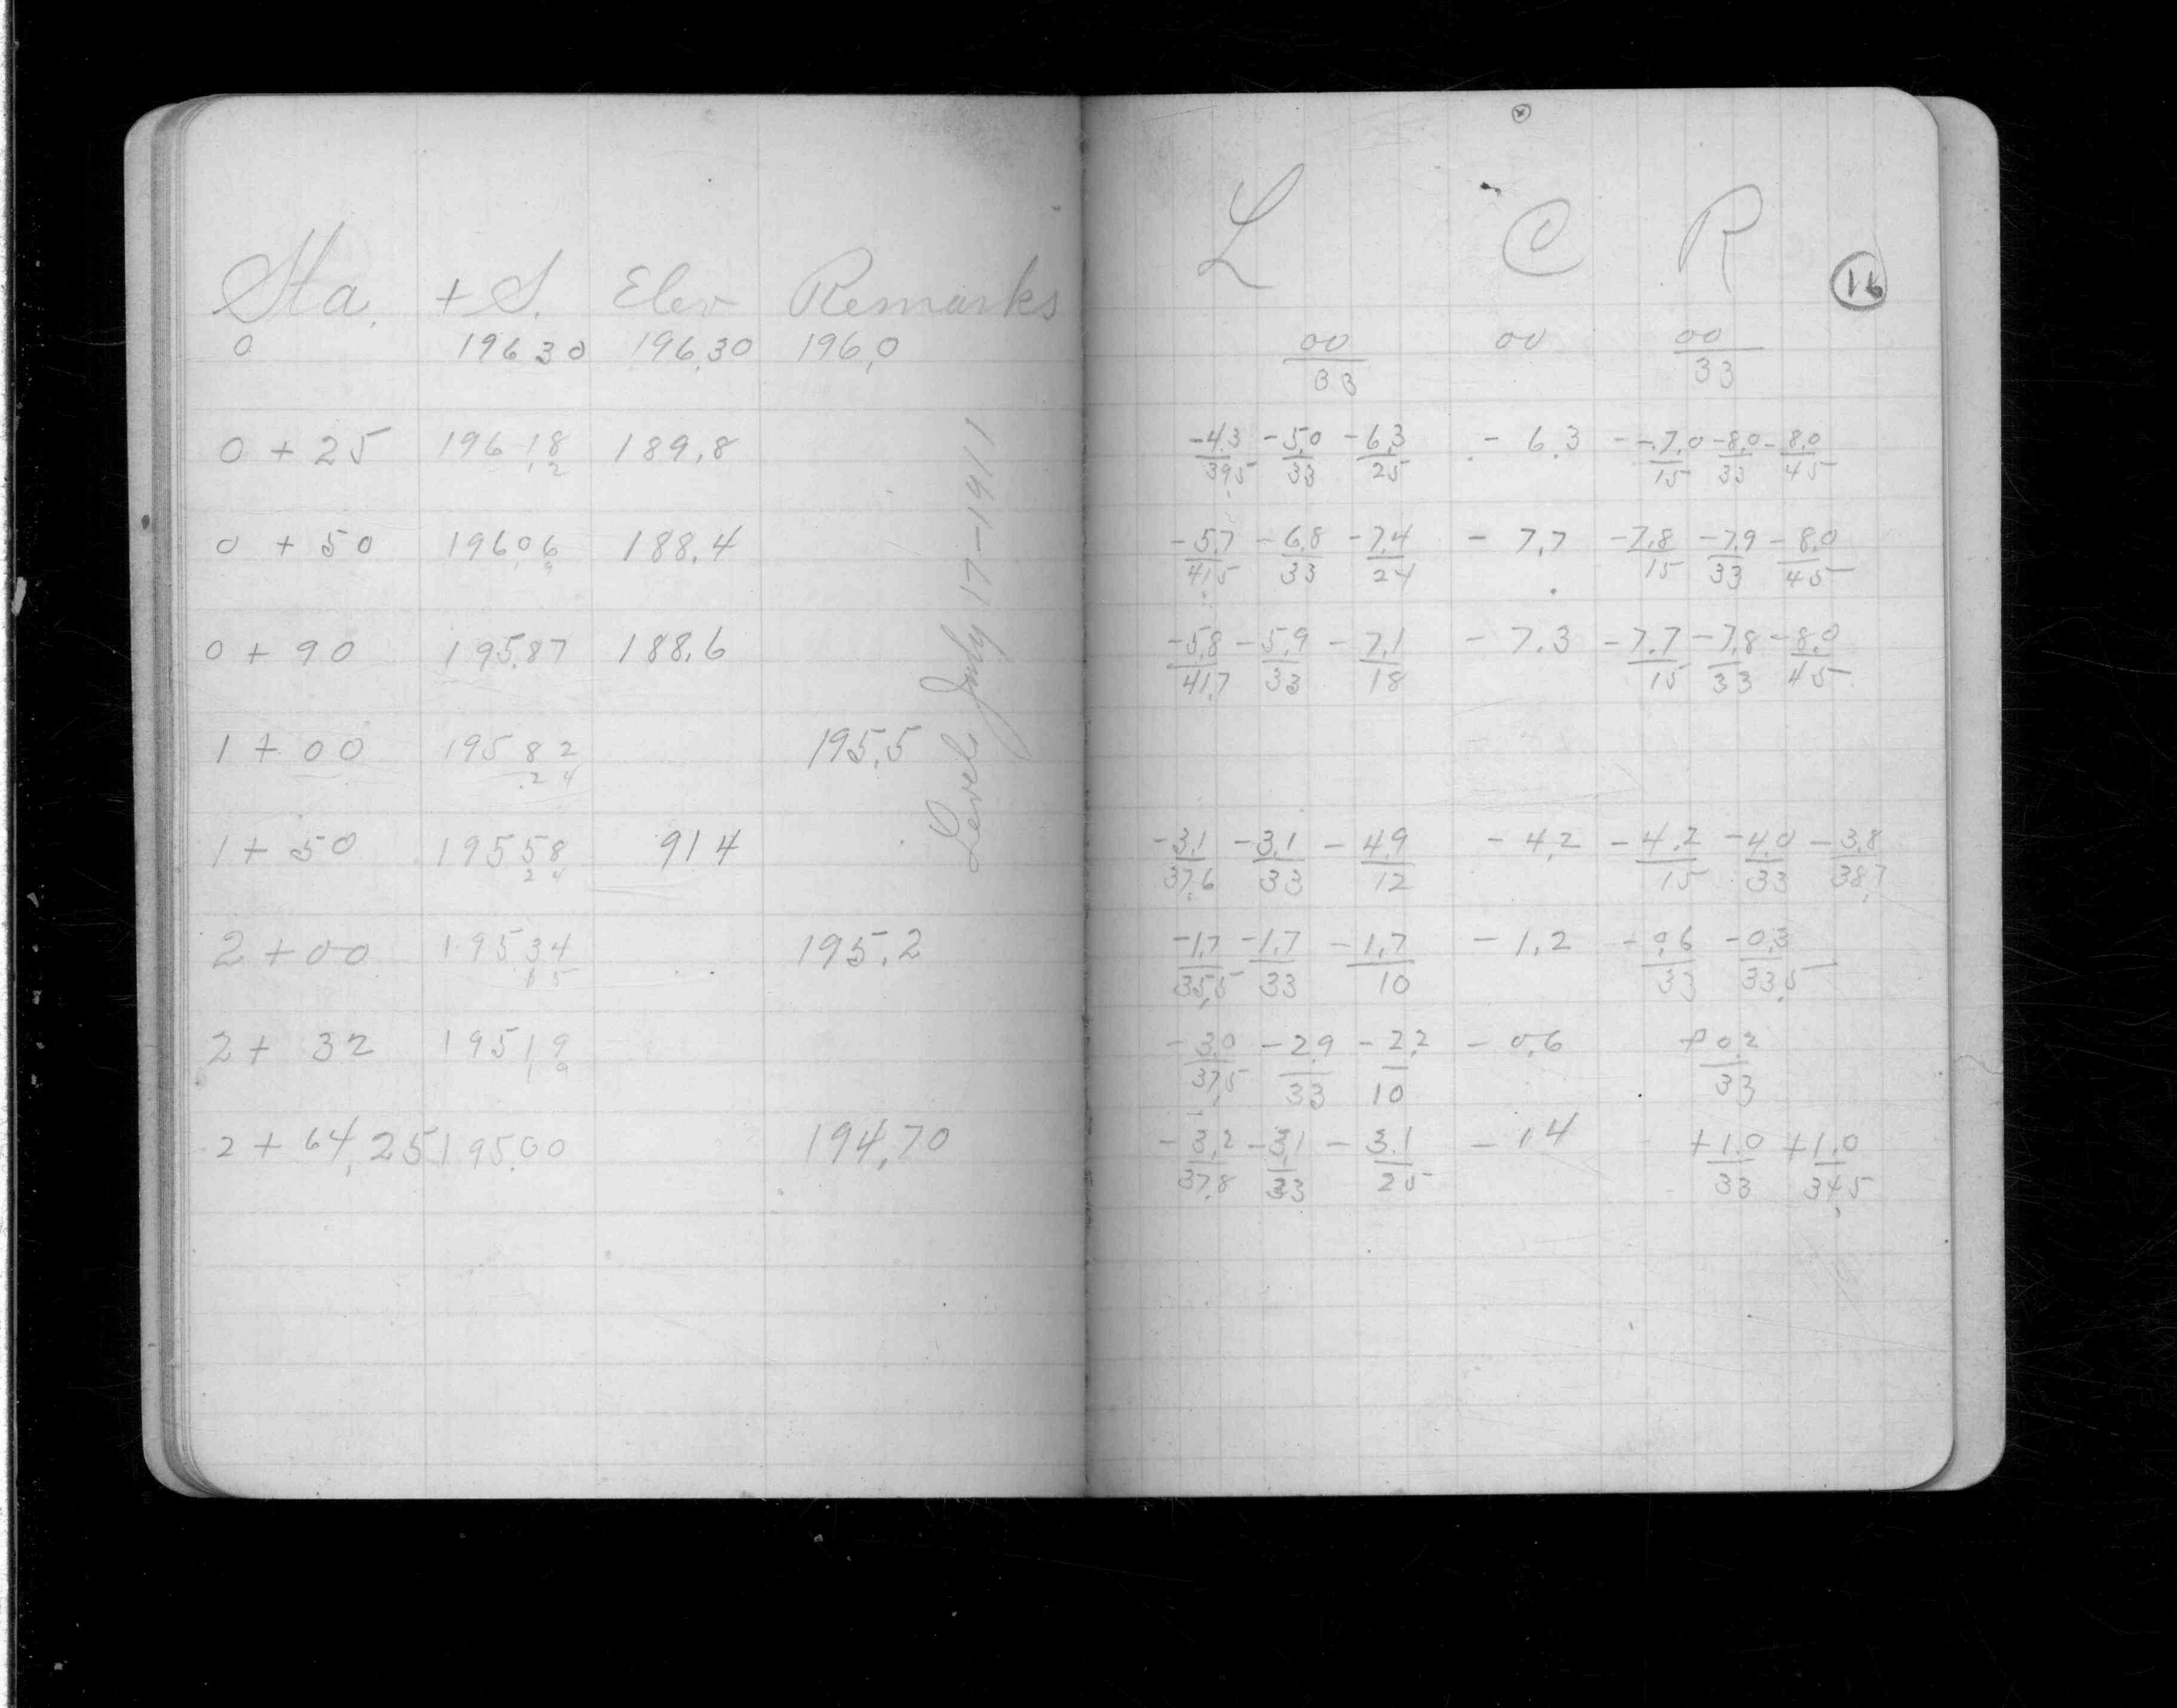 Sta. +S. Elev Remarks
0 196 30 196.30 196.0
0 + 25 196 18 189.8
.12
0 + 50 196.06 188.4
9
0 + 90 195.87 188.6
1 + 00 195 82 195.5
.24
1 + 50 195 58 91 4
24
2 + 00 195 34 195.2
15
2 + 32 195 19
19
2 + 64.25 195.00 194.70
Levels July 17-1911
L C R
16
00/33 00 00/33
-4.3/39.5 -5.0/33 -6.3/25 - 6.3 - -7.0/15 -8.0/33 - 8.0/45
-5.7/41.5 -6.8/33 -7.4/24 - 7.7 -7.8/15 -7.9/33 - 8.0/45
-5.8/41.7 -5.9/33 - 7.1/18 - 7.3 -7.7/15 -7.8/33 -8.0/45
-3.1/37.6 -3.1/33 - 4.9/12 - 4.2 - 4.2/15 -4.0/33 -3.8/38.7
-1.7/35.5 -1.7/33 - 1.7/10 - 1.2 - 0.6/33 -0.3/33.5
- 3.0/37.5 - 2.9/33 - 2.2/10 - 0.6 + 0.2/33
- 3.2/37.8 -3.1/33 - 3.1/25 - 1.4 +1.0/33 +1.0/34.5